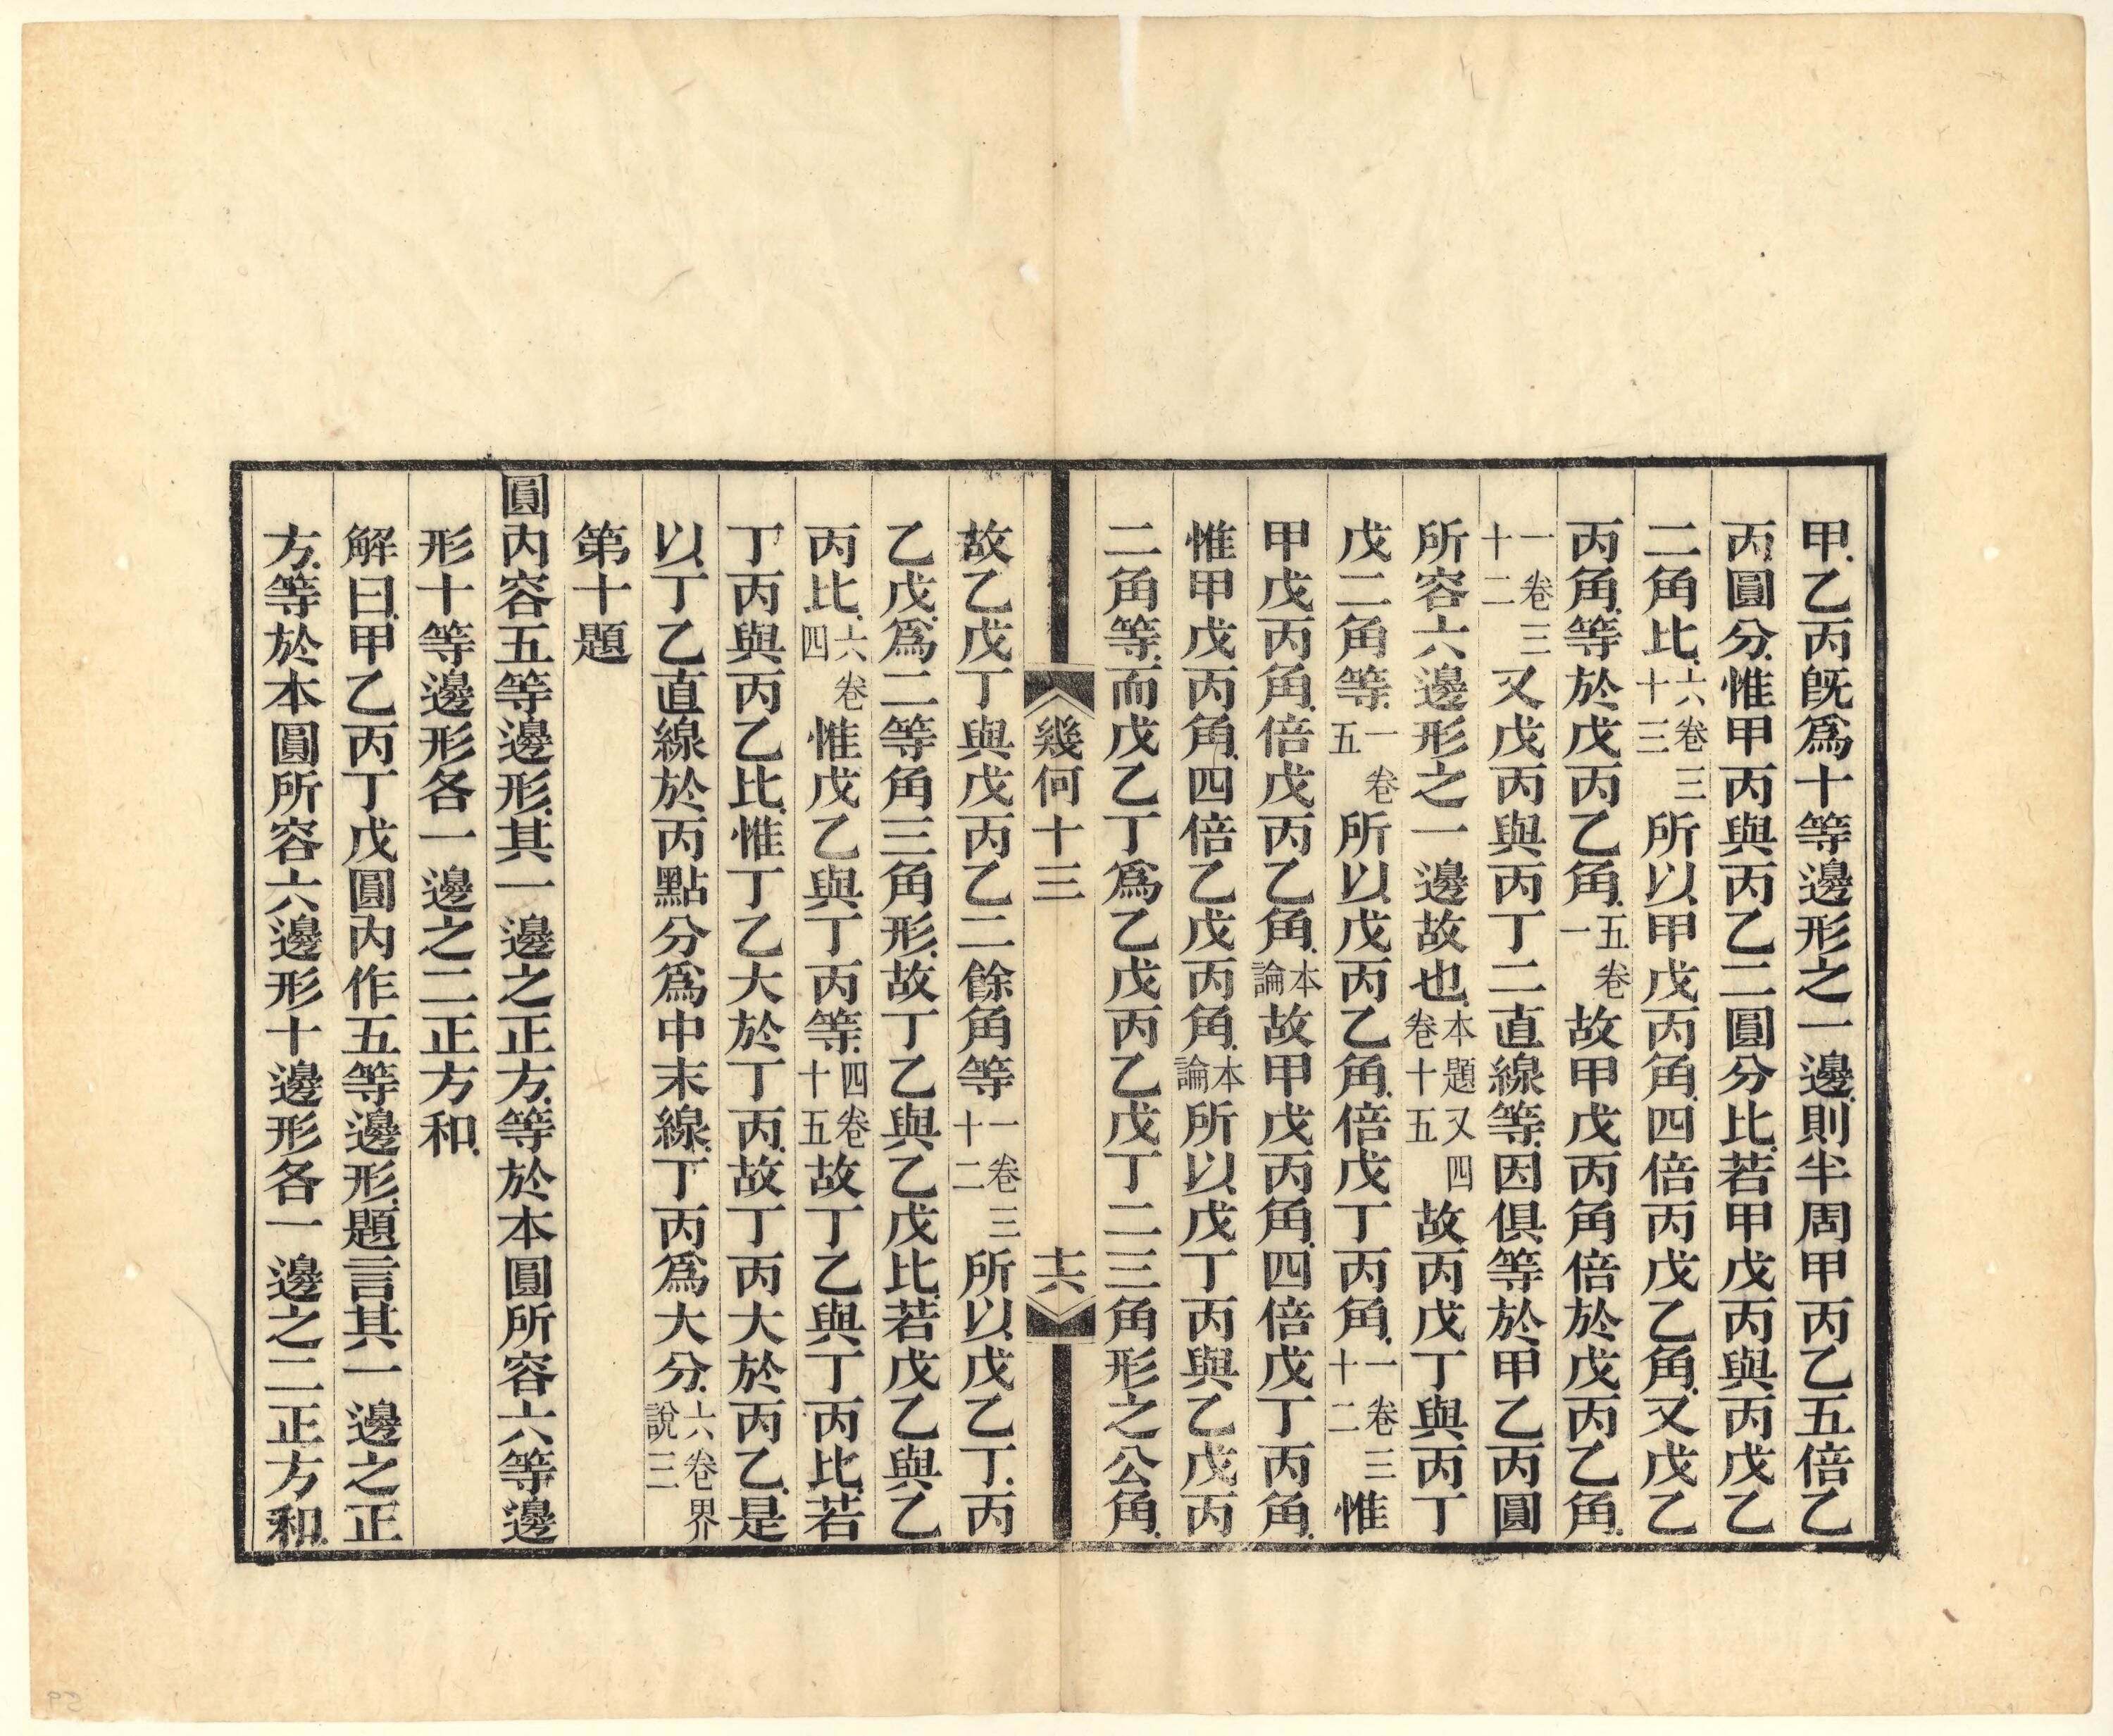 甲乙丙旣爲十等邊形之一邊則半周甲丙乙五倍乙
丙圓分惟甲丙與丙乙二圓分比若甲戊丙與丙戊乙
二角比六卷三十三所以甲戊丙角四倍丙戊乙角又戊乙
丙角等於戊丙乙角五卷一故甲戊丙角倍於戊丙乙角
一卷三十二又戊丙與丙丁二直線等因俱等於甲乙丙圓
所容六邊形之一邊故也本題又四卷十五故丙戊丁與丙丁
戊二角等一卷五所以戊丙乙角倍戊丁丙角一卷三十二惟
甲戊丙角倍戊丙乙角本論故甲戊丙角四倍戊丁丙角
惟甲戊丙角四倍乙戊丙角本論所以戊丁丙與乙戊丙
二角等而戊乙丁爲乙戊丙乙戊丁二三角形之公角
幾何十三 十六
故乙戊丁與戊丙乙二餘角等一卷三十二所以戊乙丁丙
乙戊爲二等角三角形故丁乙與乙戊比若戊乙與乙
丙比六卷四惟戊乙與丁丙等四卷十五故丁乙與丁丙比若
丁丙與丙乙比惟丁乙大於丁丙故丁丙大於丙乙是
以丁乙直線於丙點分爲中末線丁丙爲大分六卷界說三
第十題
圓內容五等邊形其一邊之正方等於本圓所容六等邊
形十等邊形各一邊之二正方和
解曰甲乙丙丁戊圓內作五等邊形題言其一邊之正
方等於本圓所容六邊形十邊形各一邊之二正方和